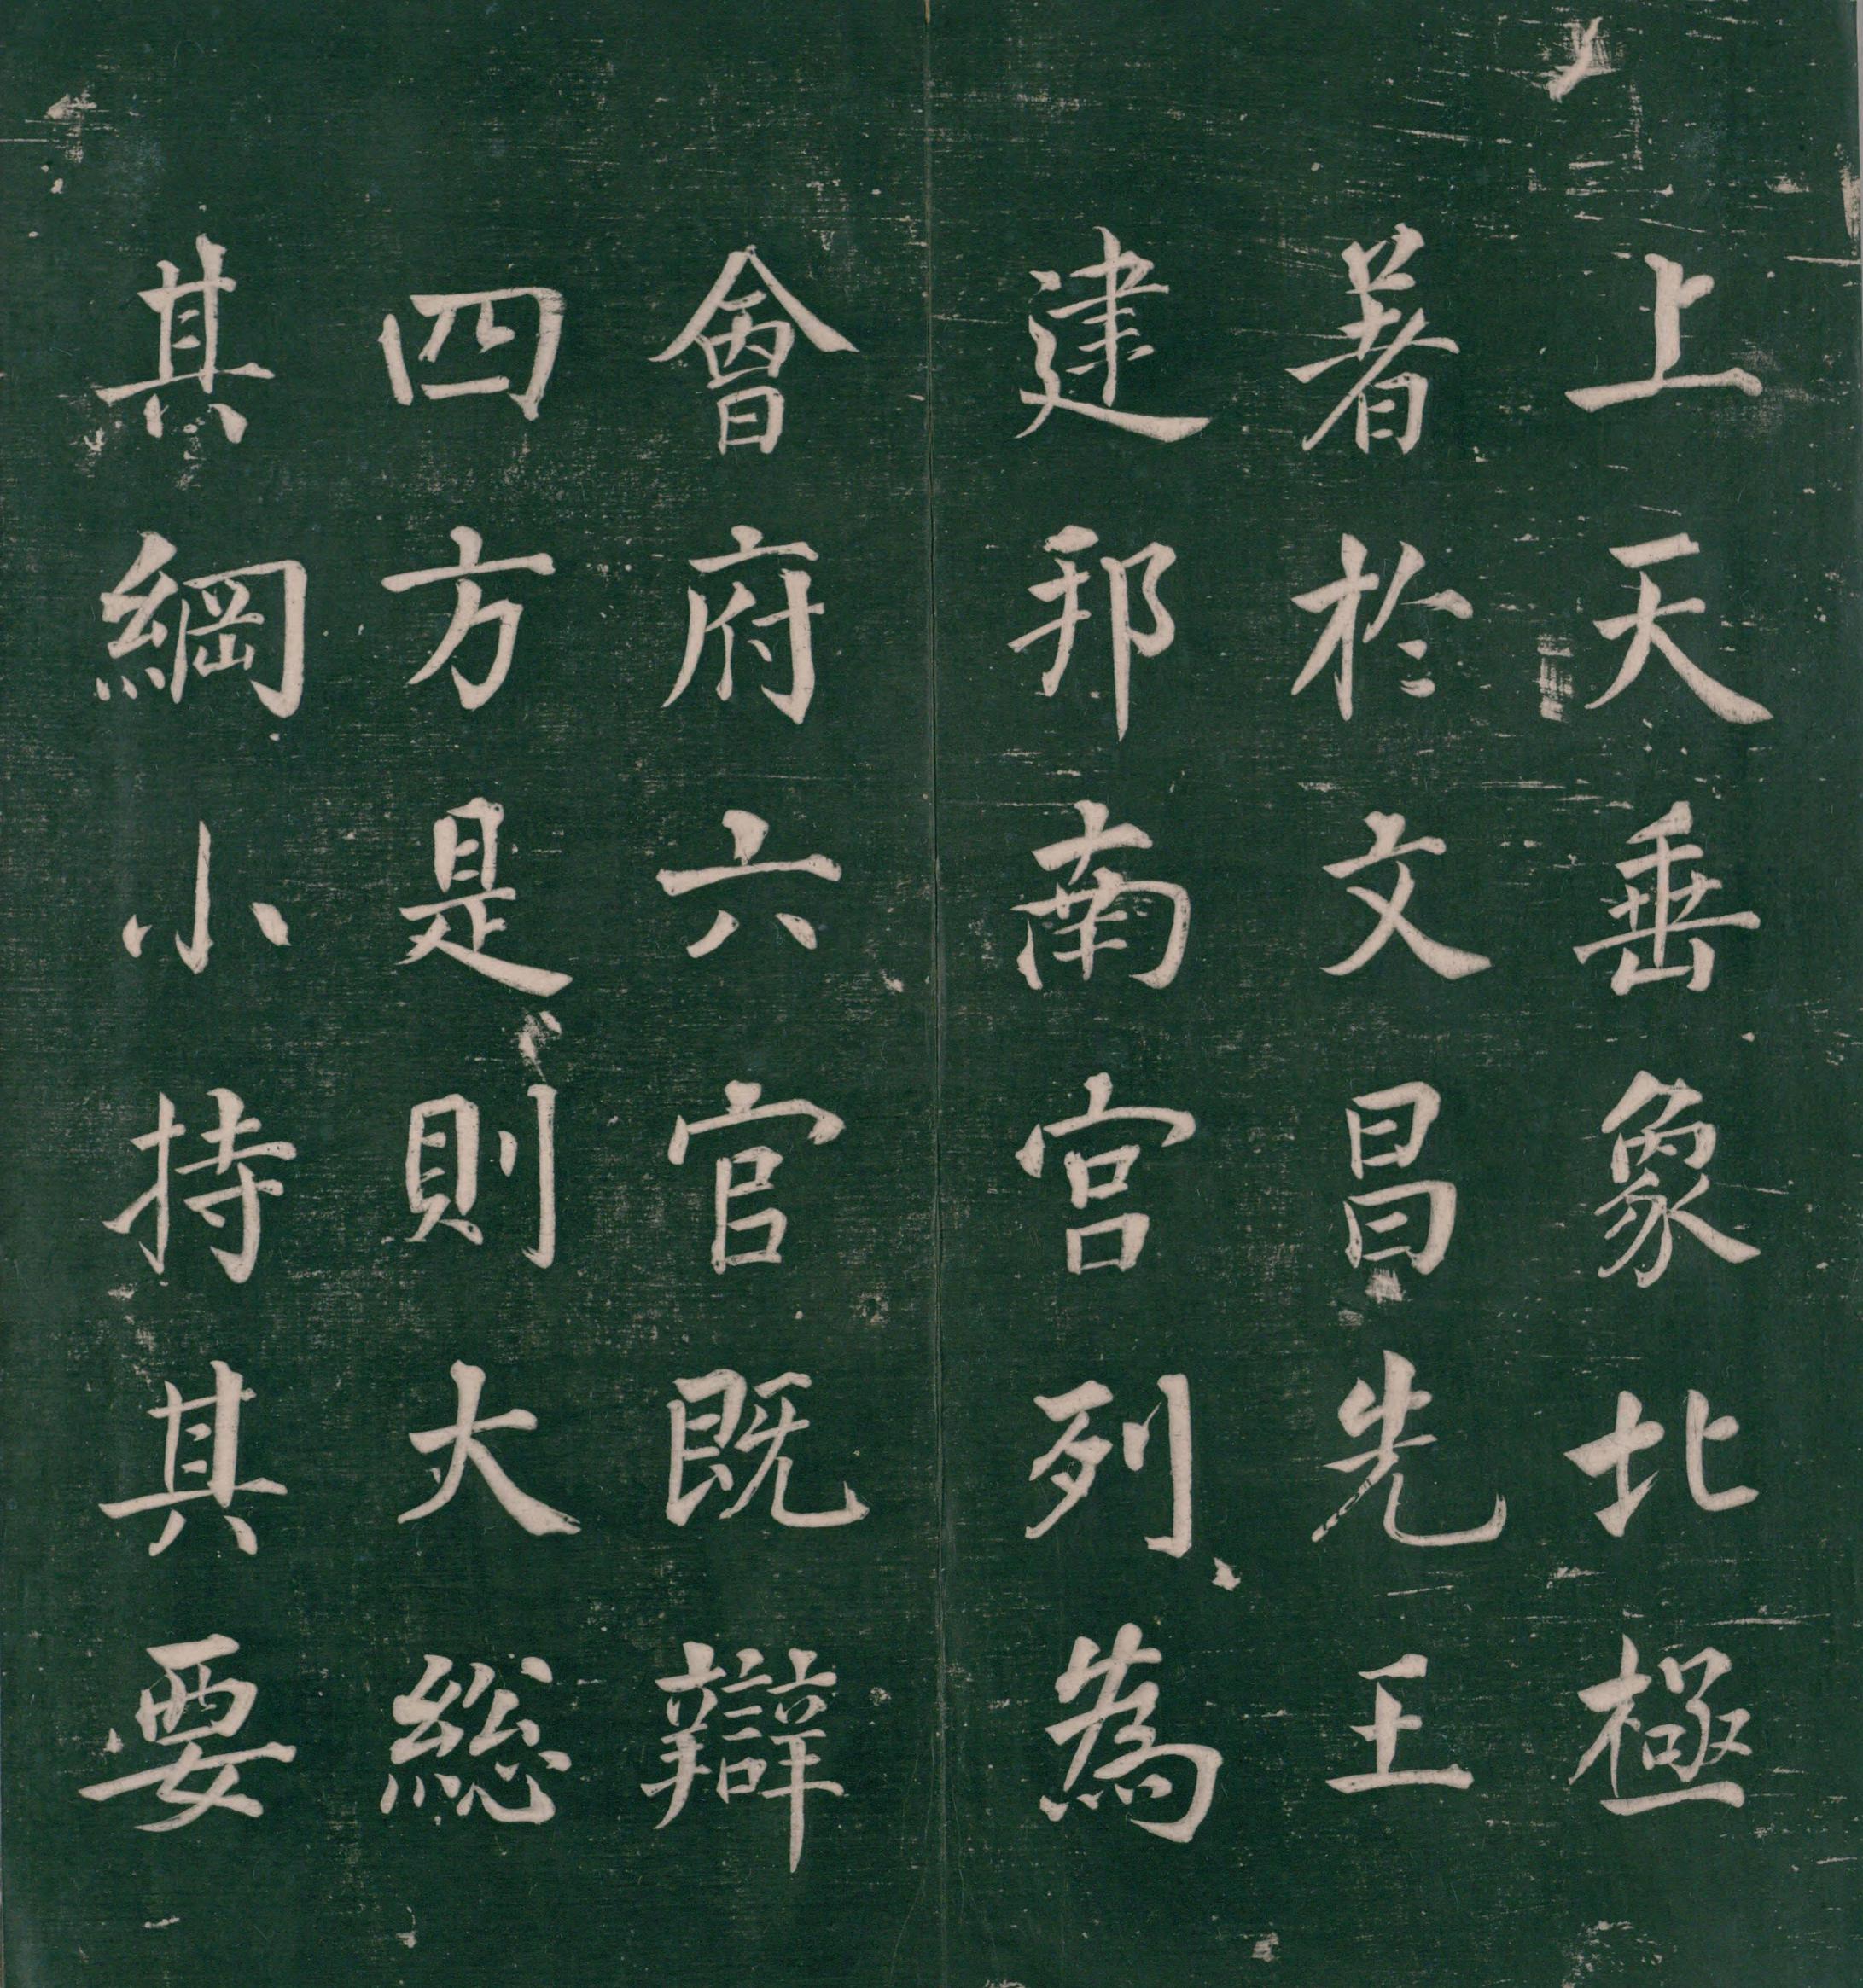 上天垂象北極
著於文昌先王
建邦南宮列為
會府六官既辯
四方是則大総
其綱小持其要